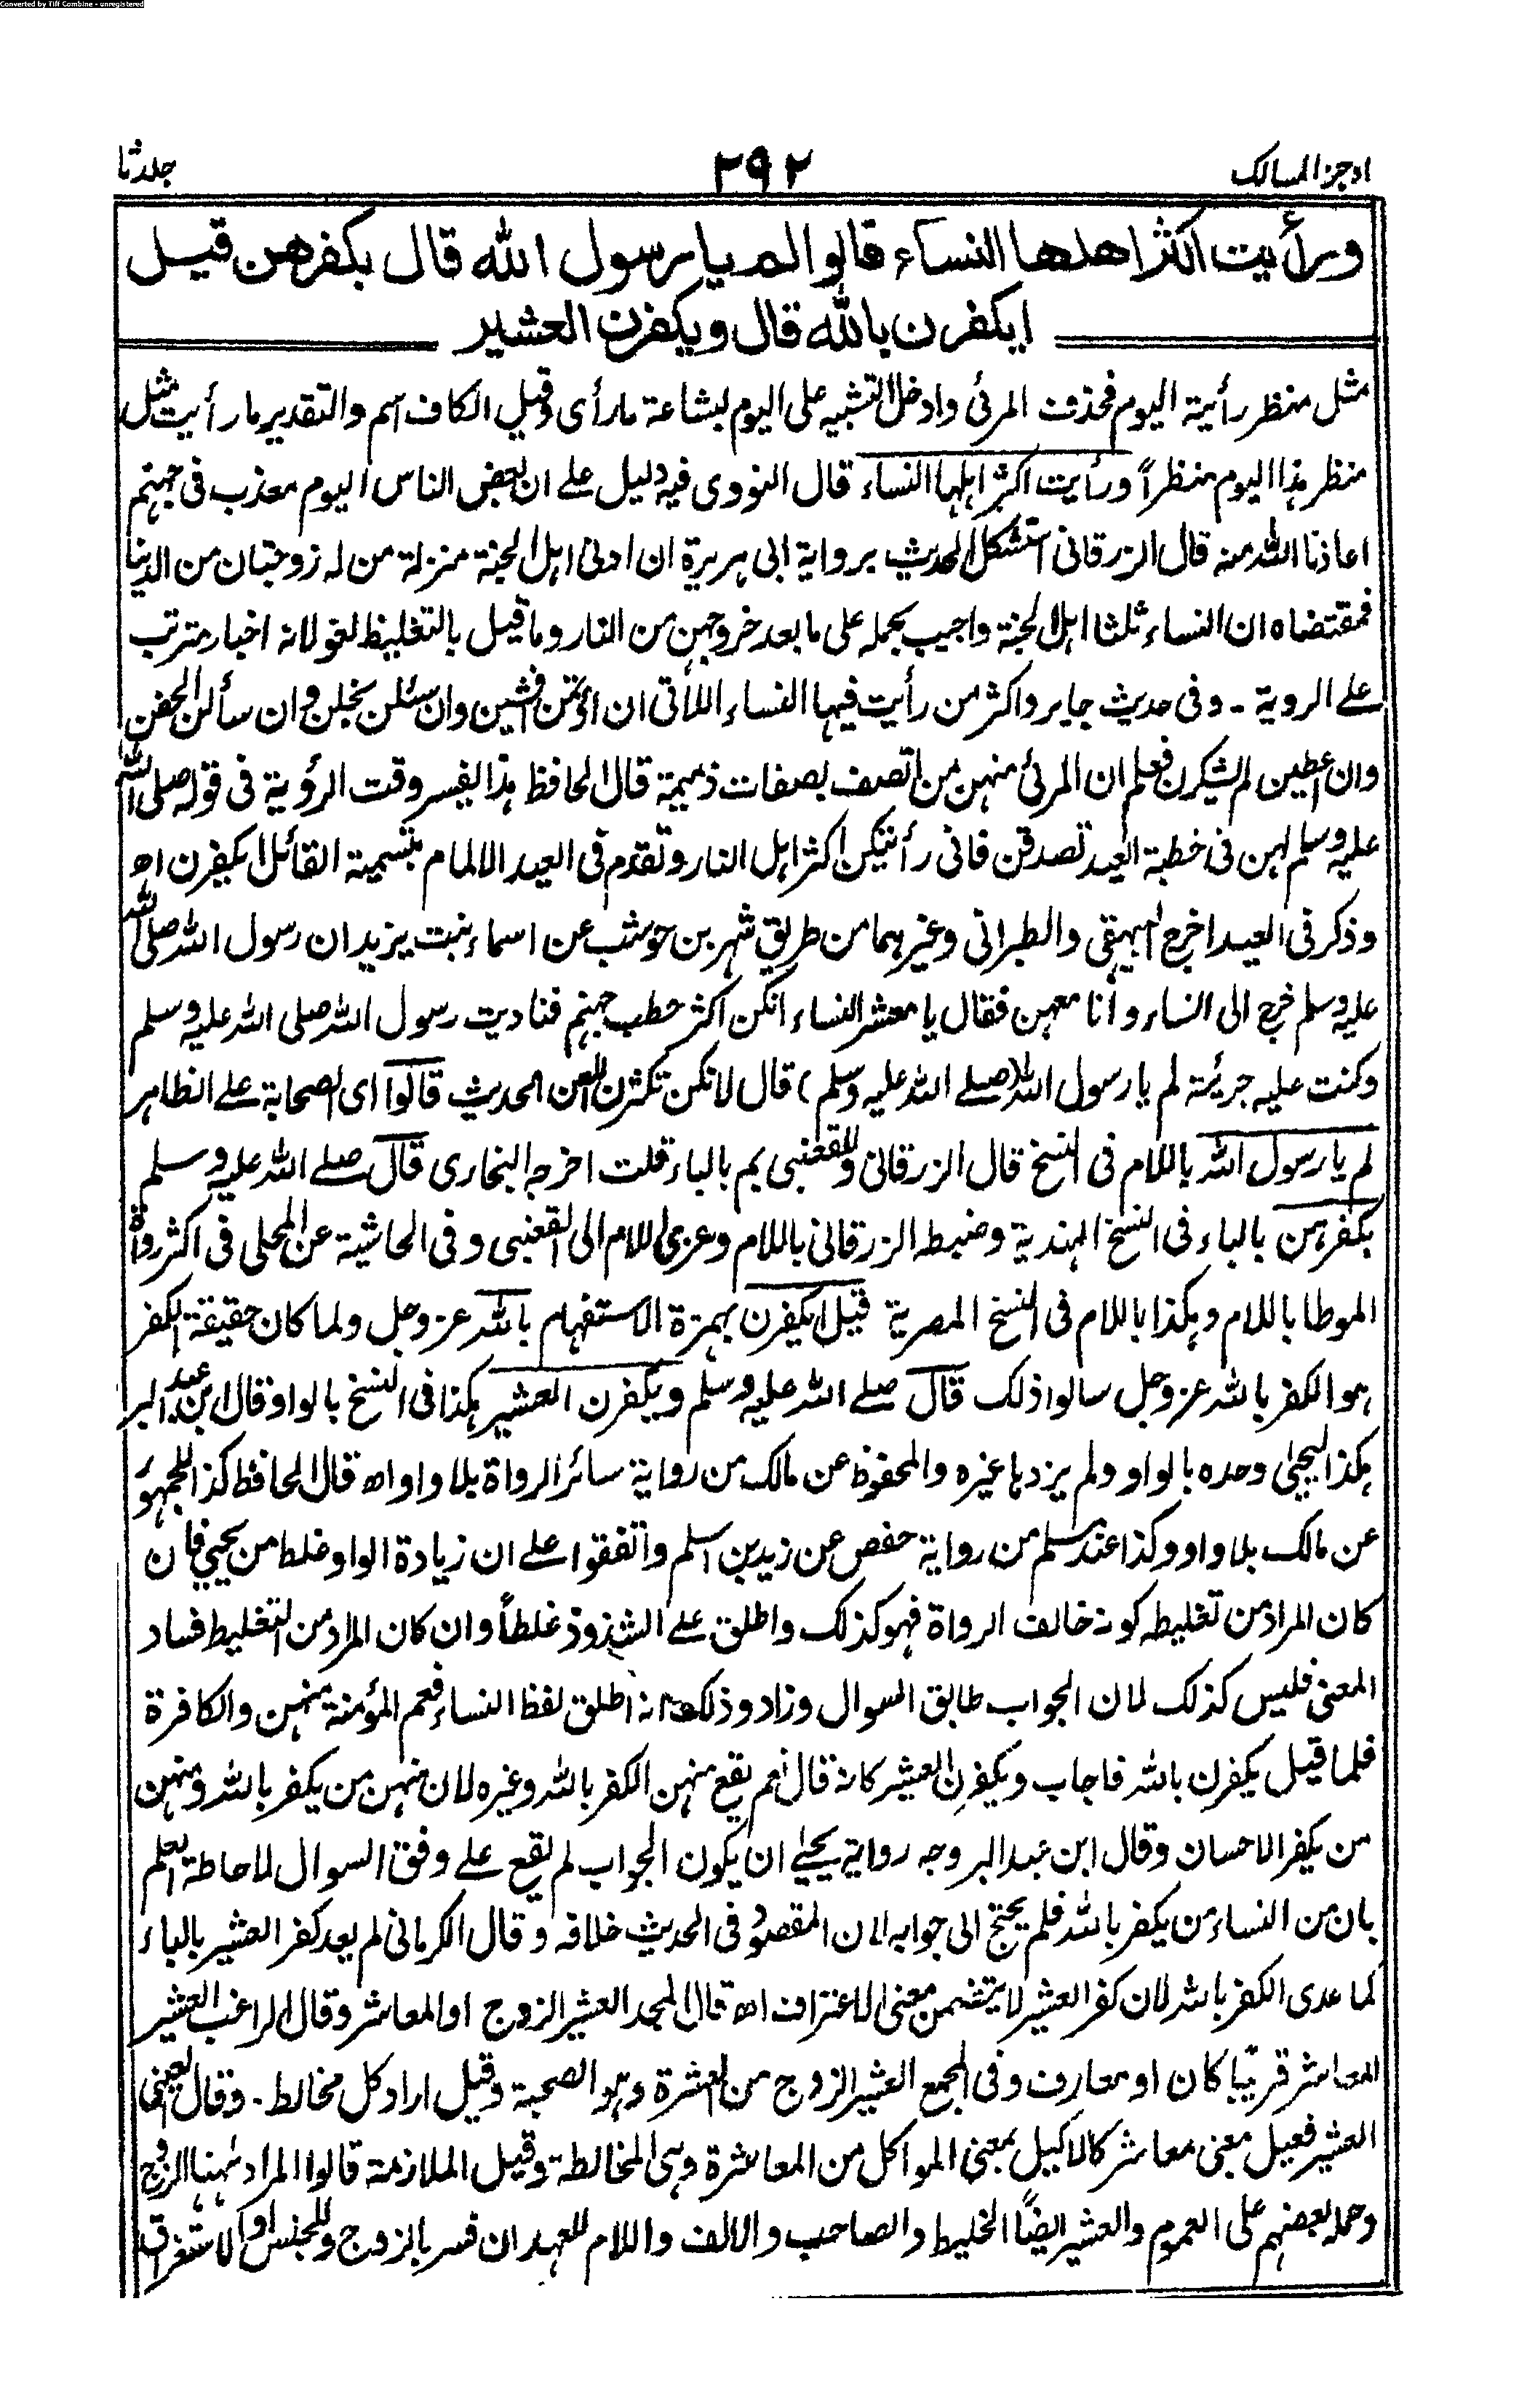 Converted by Tiff Combine - unregistered
اوجز المسالك ٢٩٢ جلد ثا
ورأيت اكثر اهلها النساء قالوا لم يا رسول الله قال بكفرهن قيل
ايكفرن بالله قال ويكفرن العشير
مثل منظر رأيته اليوم فحذف المرئى وادخل التشبيه على اليوم لبشاعة ما رأى وقيل الكاف اسم والتقدير ما رأيت مثل
منظر هذا اليوم منظراً ورأيت اكثر اهلها النساء قال النووى فيه دليل على ان بعض الناس اليوم معذب فى جهنم
اعاذنا الله منه قال الزرقانى استشكل الحديث برواية ابى هريرة ان ادنى اهل الجنة منزلة من له زوجتان من الدنيا
فمقتضاه ان النساء ثلثا اهل الجنة واجيب بحمله على ما بعد خروجهن من النار وما قيل بالتغليظ لغو لانه اخبار مترتب
على الروية - وفى حديث جابر واكثر من رأيت فيها النساء اللاتى ان اؤتمن افشين وان سئلن بخلن وان سألن الحفن
وان اعطين لم يشكرن فعلم ان المرئى منهن من اتصف بصفات ذميمة قال الحافظ هذا يفسر وقت الرؤية فى قوله صلى الله
عليه وسلم لهن فى خطبة العيد تصدقن فانى رأيتكن اكثر اهل النار وتقدم فى العيد الالمام بتسمية القائل ايكفرن اه
وذكر فى العيد اخرج البيهقى والطبرانى وغيرهما من طريق شهر بن حوشب عن اسماء بنت يزيد ان رسول الله صلى الله
عليه وسلم خرج الى النساء وأنا معهن فقال يا معشر النساء انكن اكثر حطب جهنم فناديت رسول الله صلى الله عليه وسلم
وكنت عليه جريئة لم يا رسول الله (صلى الله عليه وسلم) قال لانكن تكثرن اللعن الحديث قالوا اى الصحابة على الظاهر
لم يا رسول الله باللام فى النسخ قال الزرقانى وللقعنبى بم بالباء قلت اخرجه البخارى قال صلى الله عليه وسلم
بكفرهن بالباء فى النسخ الهندية وضبطه الزرقانى باللام وعزى اللام الى القعنبى وفى الحاشية عن المحلى فى اكثر رواة
الموطا باللام وهكذا باللام فى النسخ المصرية قيل ايكفرن بهمزة الاستفهام بالله عز وجل ولما كان حقيقة الكفر
هو الكفر بالله عز وجل سالوا ذلك قال صلى الله عليه وسلم ويكفرن العشير هكذا فى النسخ بالواو قال ابن عبد البر
هكذا ليحيى وحده بالواو ولم يزدها غيره والمحفوظ عن مالك من رواية سائر الرواة بلا واو اه قال الحافظ كذا للجمهور
عن مالك بلا واو وكذا عند مسلم من رواية حفص عن زيد بن اسلم واتفقوا على ان زيادة الواو غلط من يحيى فان
كان المراد من تغليطه كونه خالف الرواة فهو كذلك واطلق على الشذوذ غلطاً وان كان المراد من التغليط فساد
المعنى فليس كذلك لان الجواب طابق السوال وزاد وذلك انه اطلق لفظ النساء فعم المؤمنة منهن والكافرة
فلما قيل يكفرن بالله فاجاب ويكفرن العشير كانه قال نعم يقع منهن الكفر بالله وغيره لان منهن من يكفر بالله ومنهن
من يكفر الاحسان وقال ابن عبد البر وجه رواية يحيى ان يكون الجواب لم يقع على وفق السوال لاحاطة العلم
بان من النساء من يكفر بالله فلم يحتج الى جوابه لان المقصود فى الحديث خلافه وقال الكرمانى لم يعد كفر العشير بالباء
كما عدى الكفر بالله لان كفر العشير لا يتضمن معنى الاعتراف اه قال المجد العشير الزوج او المعاشر وقال الراغب العشير
المعاشر قريبًا كان او معارف وفى المجمع العشير الزوج من العشرة وهو الصحبة وقيل اراد كل مخالط - وقال العينى
العشير فعيل بمعنى معاشر كالاكيل بمعنى المواكل من المعاشرة وهى المخالطة وقيل الملازمة قالوا المراد ههنا الزوج
وحمله بعضهم على العموم والعشير ايضًا الخليط والصاحب والالف واللام للعهد ان فسر بالزوج وللجنس او الاستغراق